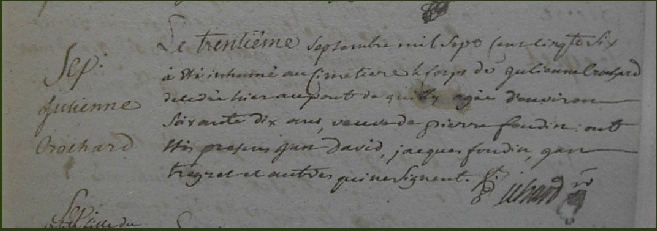 Sep:
Julienne
Crochard
Le trentiéme septembre mil sept cent vingt six
a été inhumé au cimetiere le corps de Julienne Crochard
decedée hier au pont de agée d'environ
soixante dix ans, veuve de pierre foudin; ont
étés presens jean David, jacques foudin, jean
tregret et autres qui ne signent.
Sep: